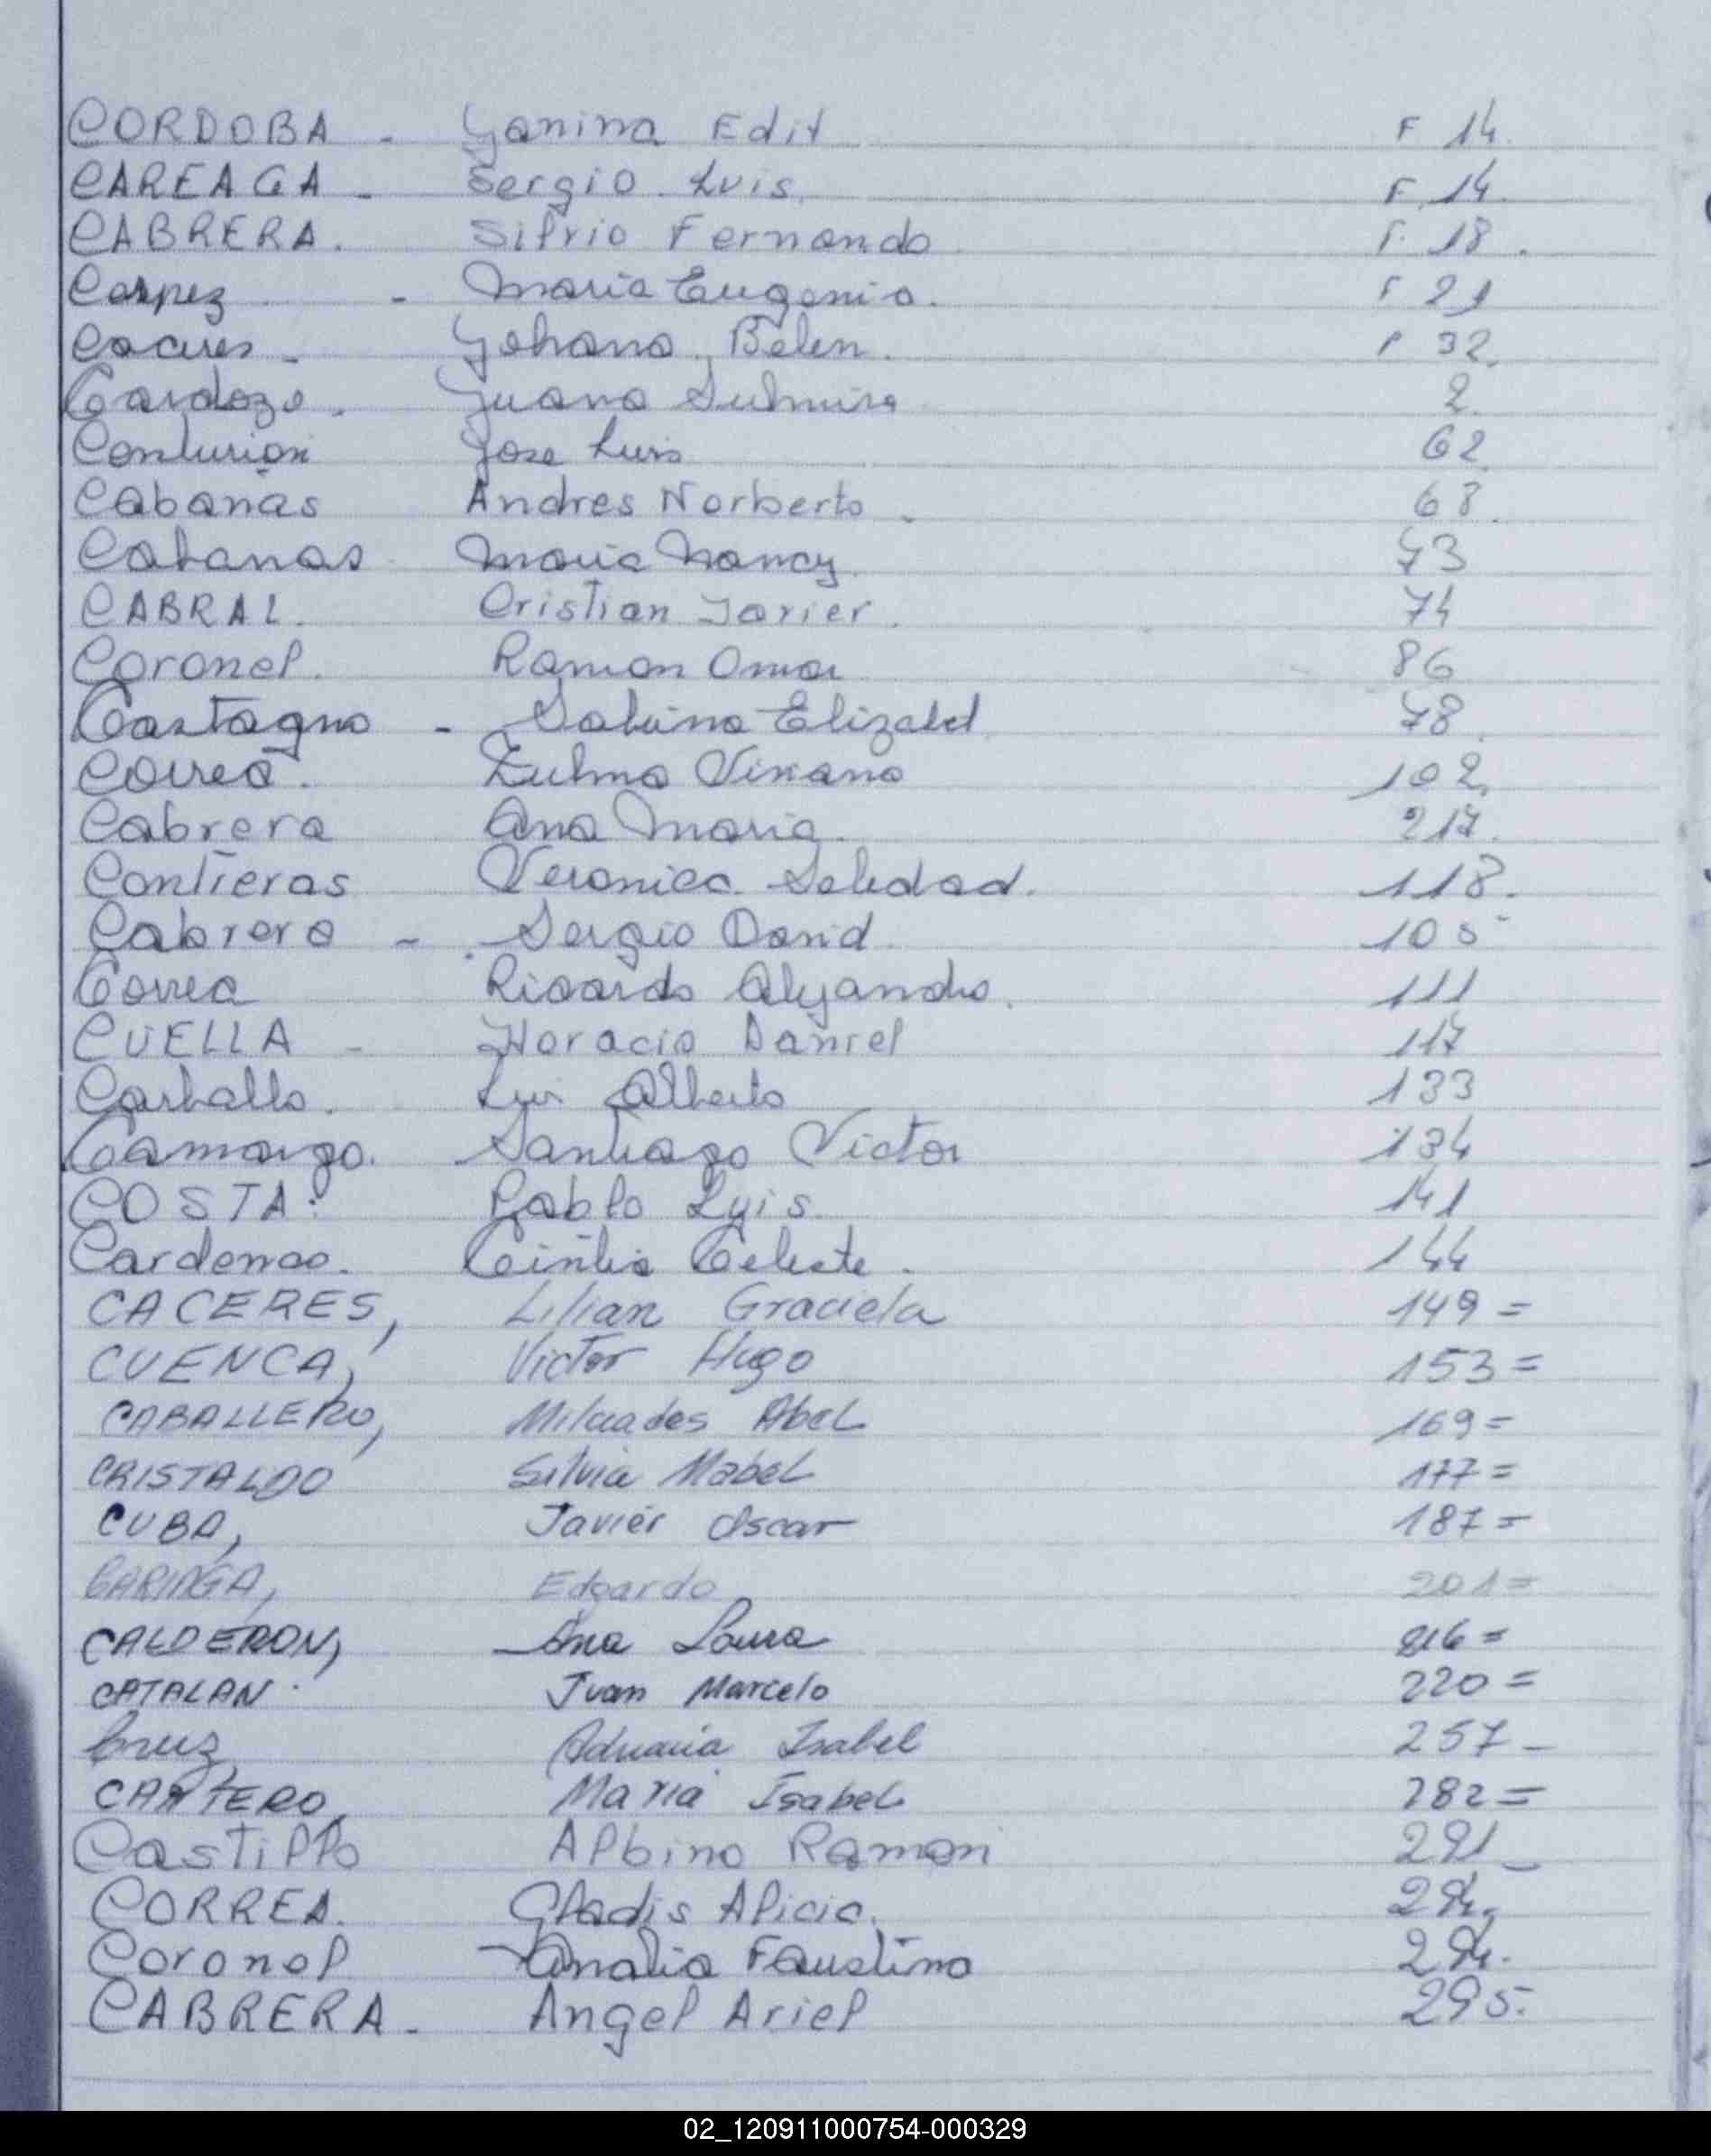 CORDOBA - Yanina Edit F 14.
CAREAGA - Sergio Luis F 14.
CABRERA. Silvio Fernando F. 18.
Carpez - Maria Eugenia. F 21
Caceres - Yohana Belen. F 32.
Cardozo. Juana Sulmira 2
Centurion Jose Luis 62
Cabañas Andres Norberto. 68.
Cabanas Maria Nancy. 73
CABRAL. Cristian Javier. 74
Coronel. Ramon Omar 86
Castagno - Sabina Elizabet 78.
Correa. Zulma Viviana 102.
Cabrera Ana Maria. 217.
Contreras Veronica Soledad. 118.
Cabrera - Sergio David 105
Correa Ricardo Alejandro. 111
CUELLA - Horacio Daniel 117
Carballo. Luis Alberto 133
Camargo. Santiago Victor 134
COSTA. Pablo Luis. 141
Cardenas. Cintia Celeste. 144
CACERES, Lilian Graciela 149 =
CUENCA, Victor Hugo 153 =
CABALLERO, Milciades Abel 169 =
CRISTALDO Silvia Mabel 177 =
CUBA, Javier Oscar 187 =
Edgardo 201 =
CALDERON, Ana Laura 216 =
CATALAN. Juan Marcelo 220 =
Cruz, Adriana Isabel 257 -
CANTERO, Maria Isabel 282 =
Castillo Albino Ramon 291 -
CORREA. Gladis Alicia. 294.
Coronel Analia Faustina 294.
CABRERA - Angel Ariel 295.
02_120911000754-000329